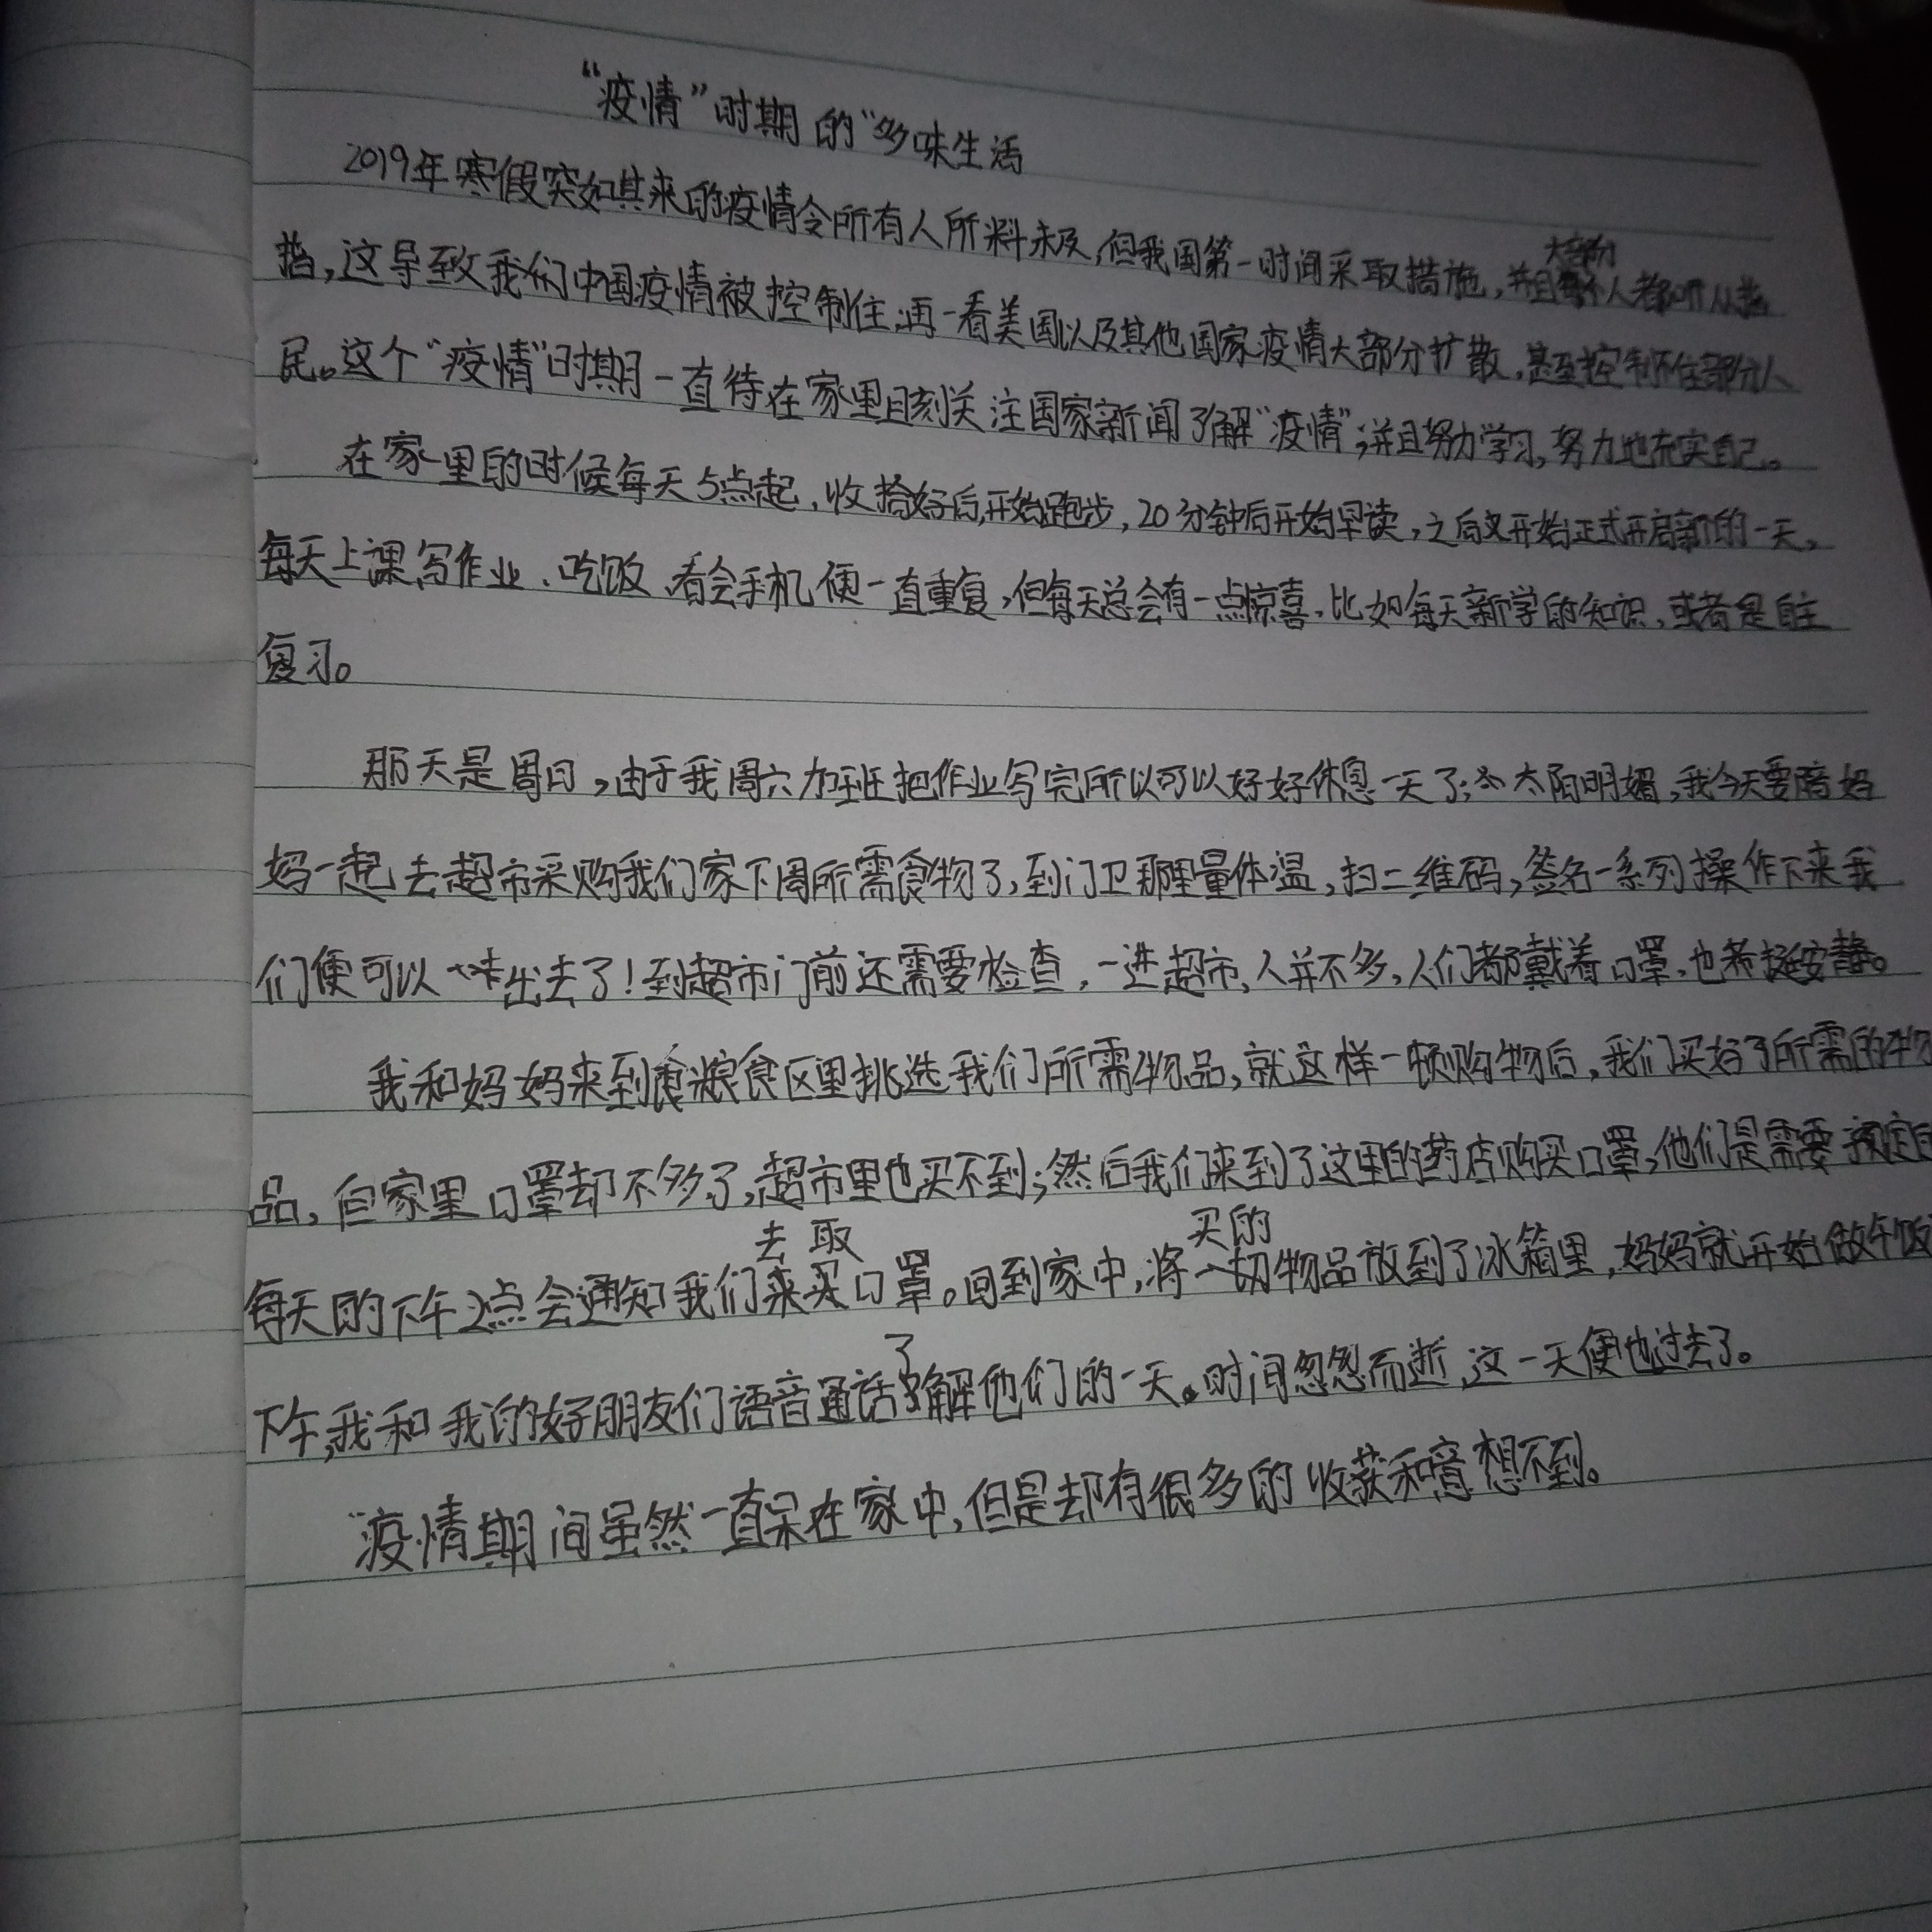 “疫情”时期的“多味生活
2019年寒假突如其来的疫情令所有人所料未及,但我国第一时间采取措施,并且大部分人都听从指
挡,这导致我们中国疫情被控制住,再一看美国以及其他国家疫情大部分扩散,甚至控制不住部分人
民。这个“疫情”时期一直待在家里时刻关注国家新闻了解“疫情”,并且努力学习,努力地充实自己。
在家里的时候每天5点起,收拾好后,开始跑步,20分钟后开始早读,之后又开始正式开启新的一天,
每天上课,写作业、吃饭、看会手机便一直重复,但每天总会有一点惊喜,比如每天新学的知识,或者是自主
复习。
那天是周日,由于我周六加班把作业写完所以可以好好休息一天了;太阳明媚,我今天要陪妈
妈一起去超市采购我们家下周所需食物了,到门卫那里量体温,扫二维码,签名一系列操作下来我
们便可以出去了!到超市门前还需要检查,一进超市,人并不多,人们都戴着口罩,也挺安静。
我和妈妈来到粮食区里挑选我们所需物品,就这样一顿购物后,我们买好了所需的物
品,但家里口罩却不多了,超市里也买不到;然后我们来到了这里的药店购买口罩,他们是需要预定
每天的下午2点会通知我们去取口罩。回到家中,将买的物品放到了冰箱里,妈妈就开始做午饭
下午,我和我的好朋友们语音通话了解他们的一天。时间忽忽而逝,这一天便也过去了。
“疫情期间虽然一直呆在家中,但是却有很多的收获和意想不到。